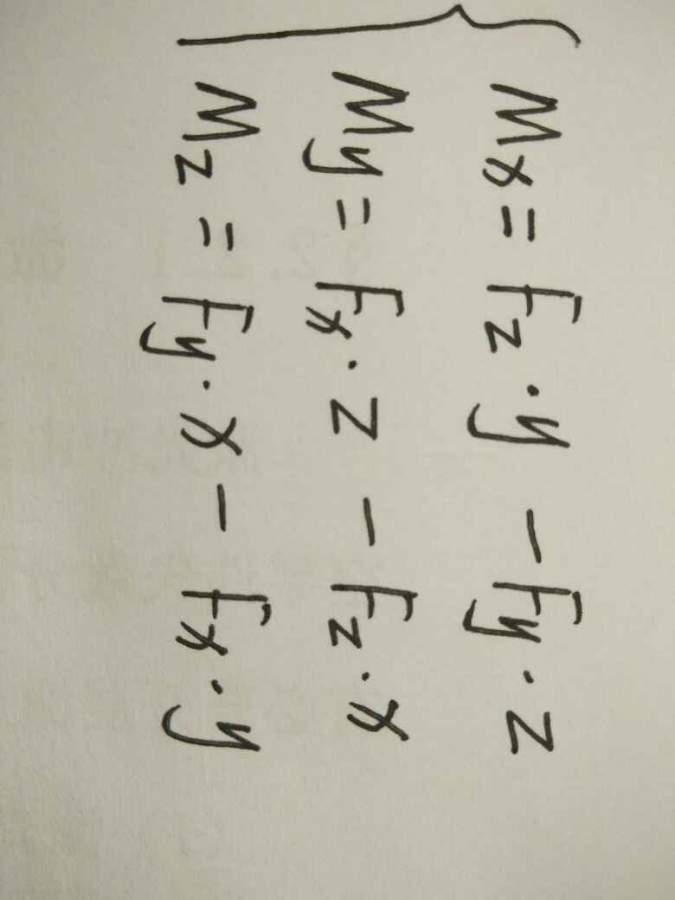 Mx = Fz · y - Fy · z
My = Fx · z - Fz · x
Mz = Fy · x - Fx · y